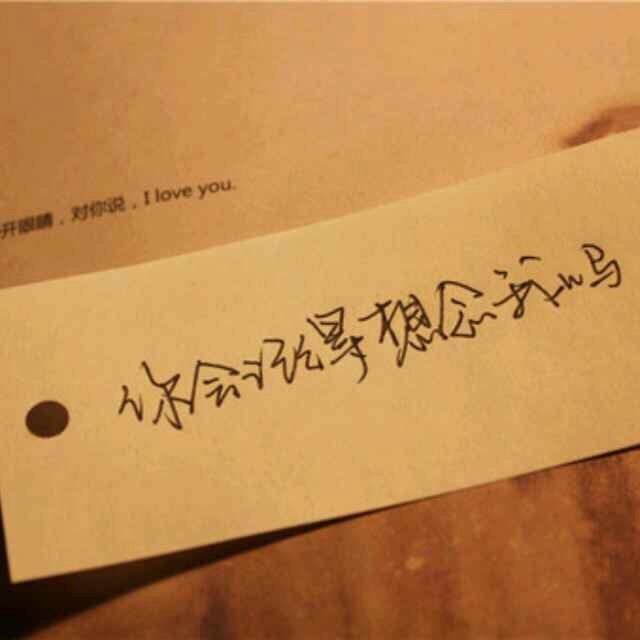 开眼睛，对你说，I love you.
你会记得想念我吗